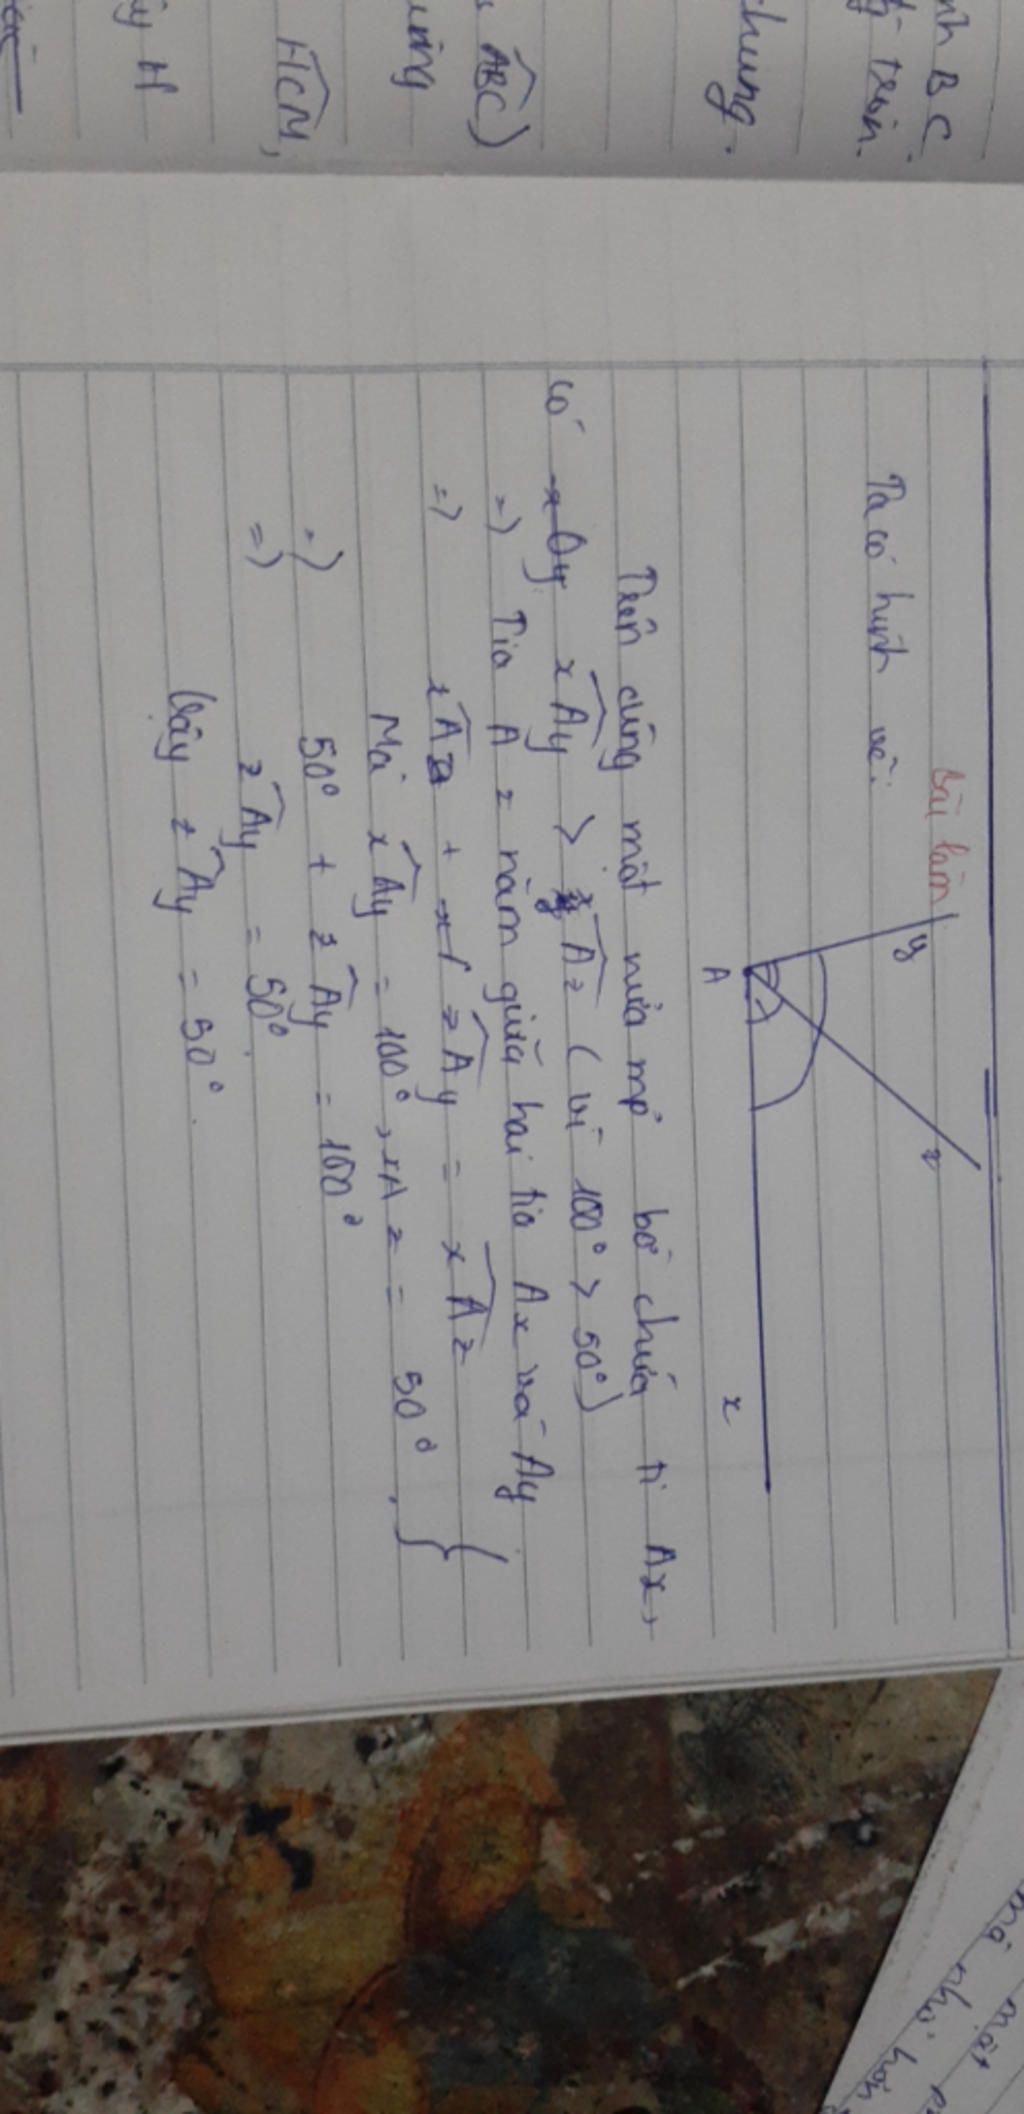 nh B C
trên.
chung.
ABC)
HCM,
y H
Bài làm
Ta có hình vẽ:
y
z
A
x
Trên cùng một nửa mp bờ chứa ti Ax,
có xAy > xAz (vì 100° > 50°)
=) Tia Az nằm giữa hai tia Ax và Ay
=) xAz + zAy = xAz
Mà xAy = 100°, xAz = 50°.
=) 50° + zAy = 100°
=) zAy = 50°.
Vậy zAy = 50°.
mà một
nhỏ hơn